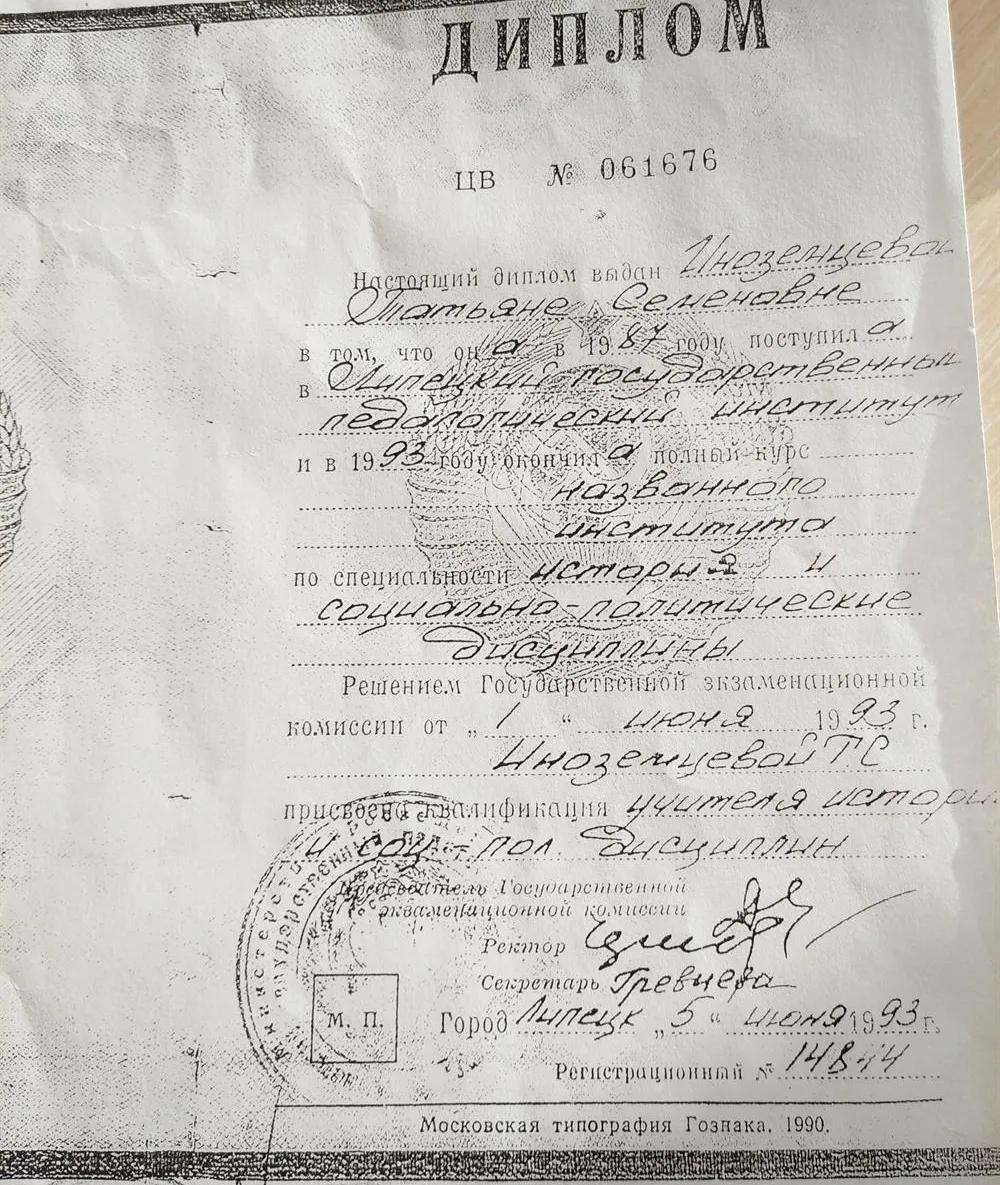 ДИПЛОМ
ЦВ № 061676
Настоящий диплом выдан Иноземцевой
Татьяне Семеновне
в том, что она в 1987 году поступила
в Липецкий государственный
педагогический институт
и в 1993 году окончила полный курс
названного
института
по специальности история и
социально-политические
дисциплины
Решением Государственной экзаменационной
комиссии от „1“ июня 1993 г.
Иноземцевой ТС
присвоена квалификация учителя истори
и соц.-пол. дисциплин
Председатель Государственной
экзаменационной комиссии
Ректор
Секретарь Гревцева
М. П.
Город Липецк „5“ июня 1993 г.
Регистрационный № 14844
Московская типография Гознака. 1990.